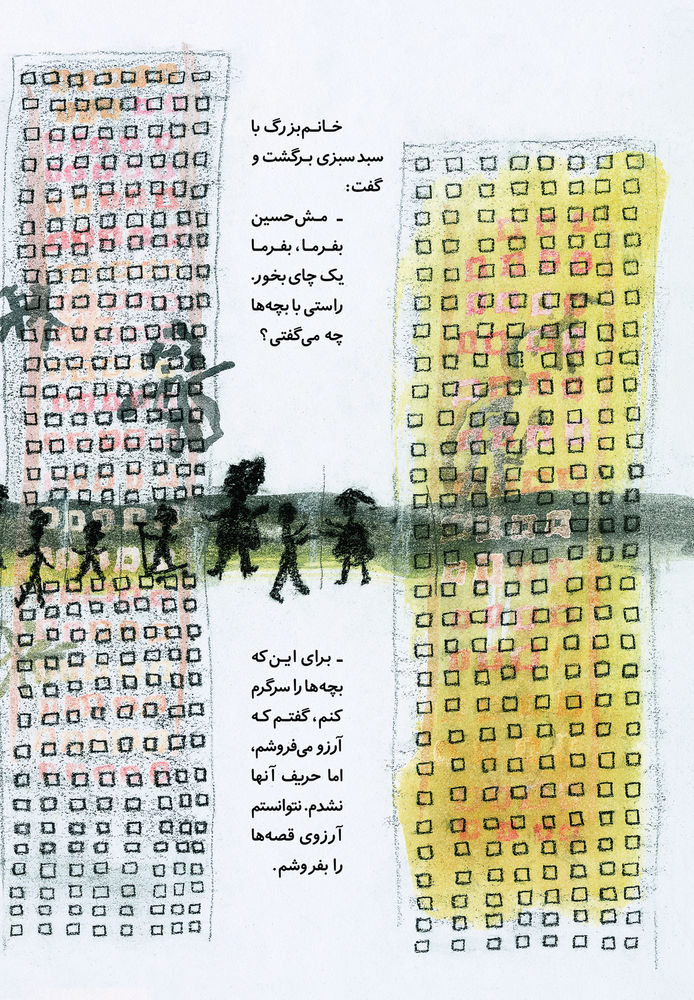 خانم‌بزرگ با
سبد سبزی برگشت و
گفت:
ـ مش‌حسین
بفرما، بفرما
یک چای بخور.
راستی با بچه‌ها
چه می‌گفتی؟
ـ برای این‌که
بچه‌ها را سرگرم
کنم، گفتم که
آرزو می‌فروشم،
اما حریف آنها
نشدم. نتوانستم
آرزوی قصه‌ها
را بفروشم.